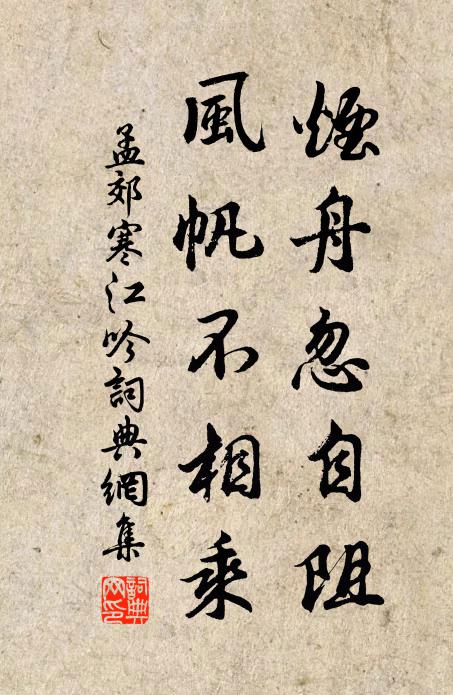 煙舟忽自阻
風帆不相乘
孟郊寒江吟詞典網集
詞典网印